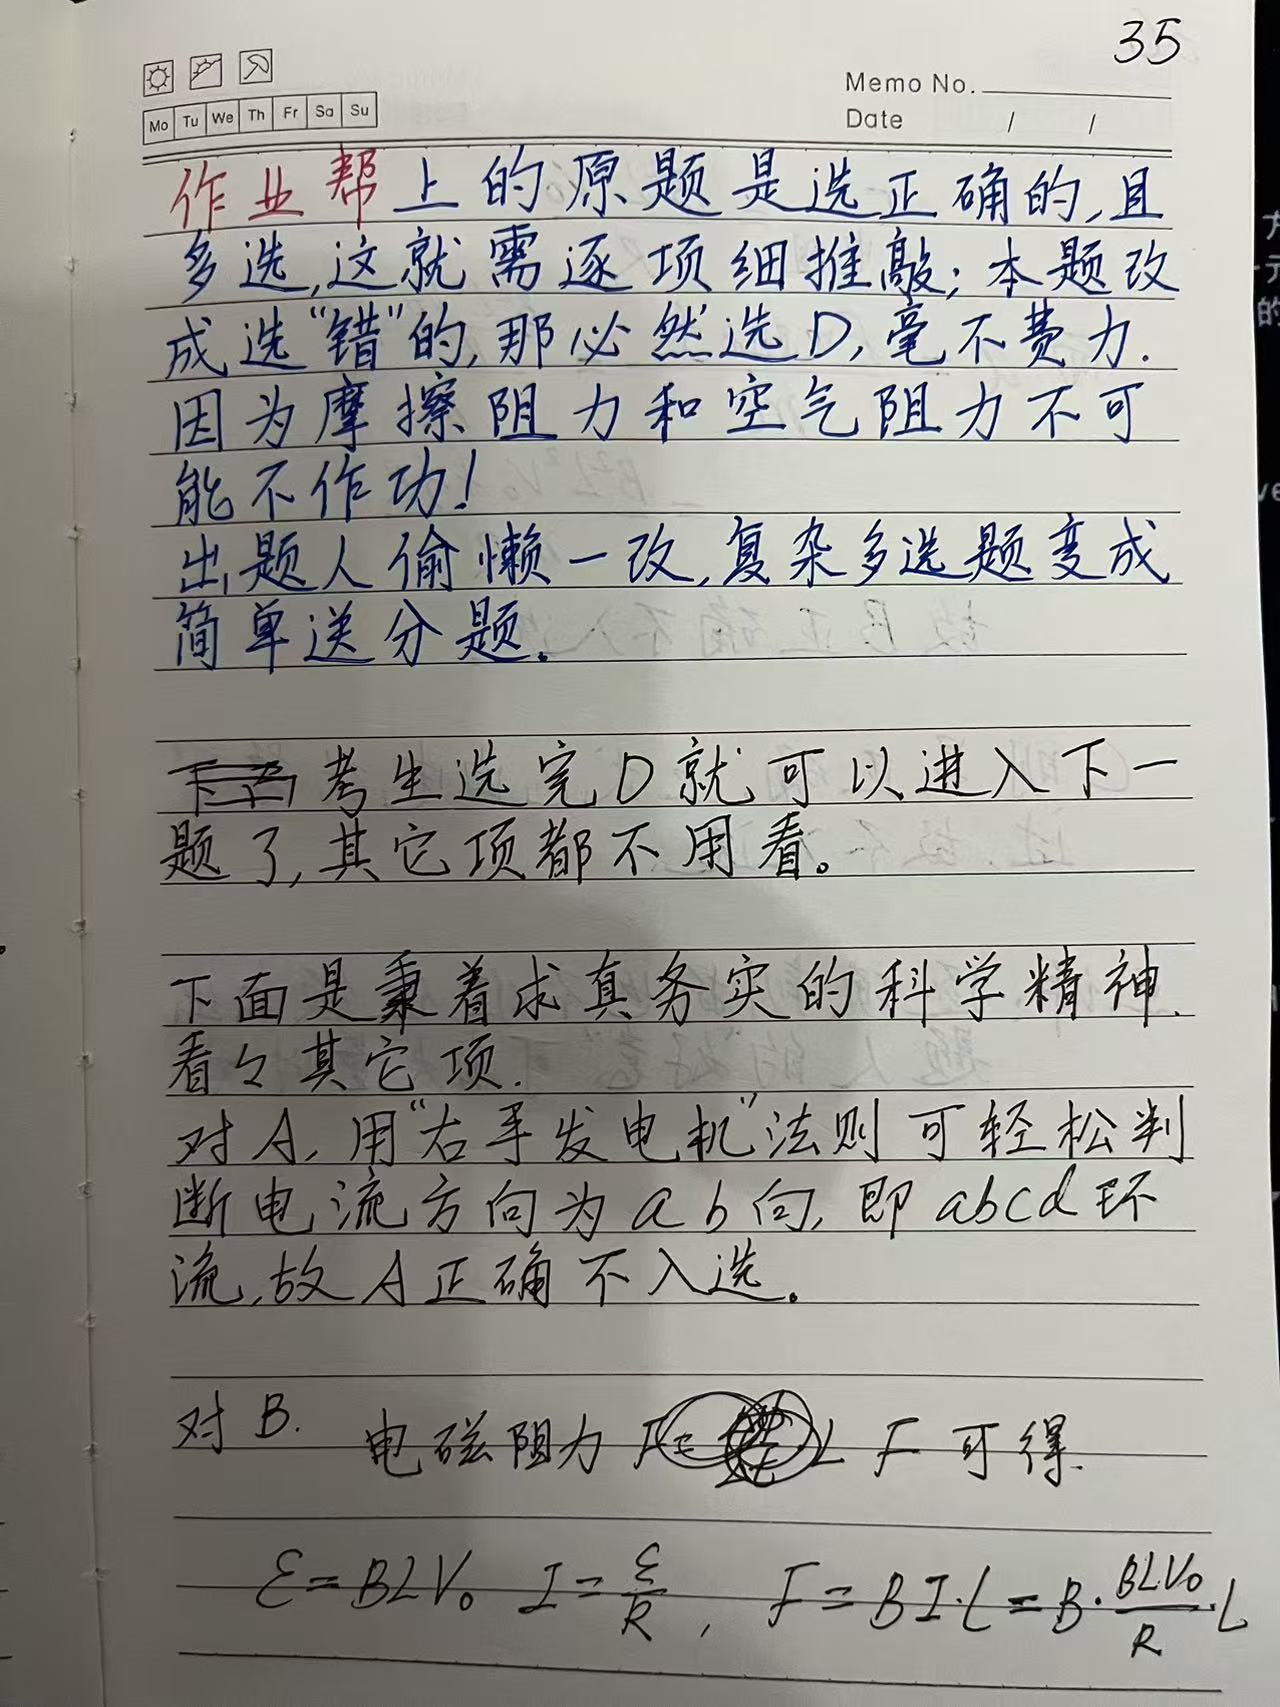 35
Memo No.
Mo Tu We Th Fr Sa Su
Date / /
作业帮上的原题是选正确的,且
多选,这就需逐项细推敲;本题改
成选"错"的,那必然选D,毫不费力.
因为摩擦阻力和空气阻力不可
能不作功!
出题人偷懒一改,复杂多选题变成
简单送分题。
考生选完D就可以进入下一
题了,其它项都不用看。
下面是秉着求真务实的科学精神.
看々其它项.
对A,用"右手发电机"法则可轻松判
断电流方向为ab向,即abcd环
流,故A正确不入选。
对B. 电磁阻力 F可得.
ε=BLV₀ I=ε/R , F=BI·L=B·BLV₀/R·L